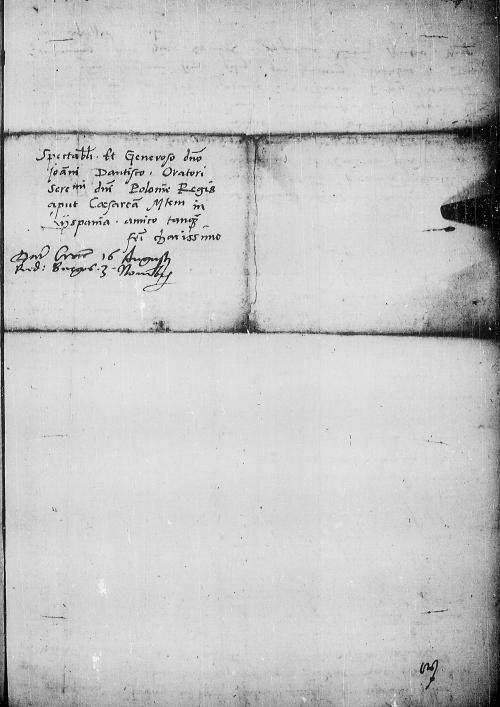 Spectabili et Generoso dno
Joanni Dantisco, Oratori
Serenmi dni Poloniae Regis
aput Caesaream Mtem in
Hyspania. amico tanq
fri charissimo
16 Augusti
Red: Burgos 3 Novembr